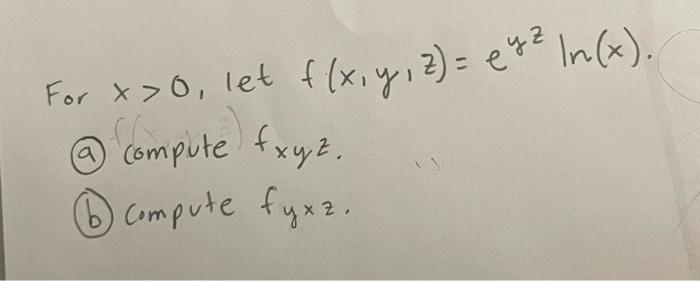 For x > 0, let f(x, y, z) = e^{yz} ln(x).
ⓐ compute f_{xyz}.
ⓑ compute f_{yxz}.